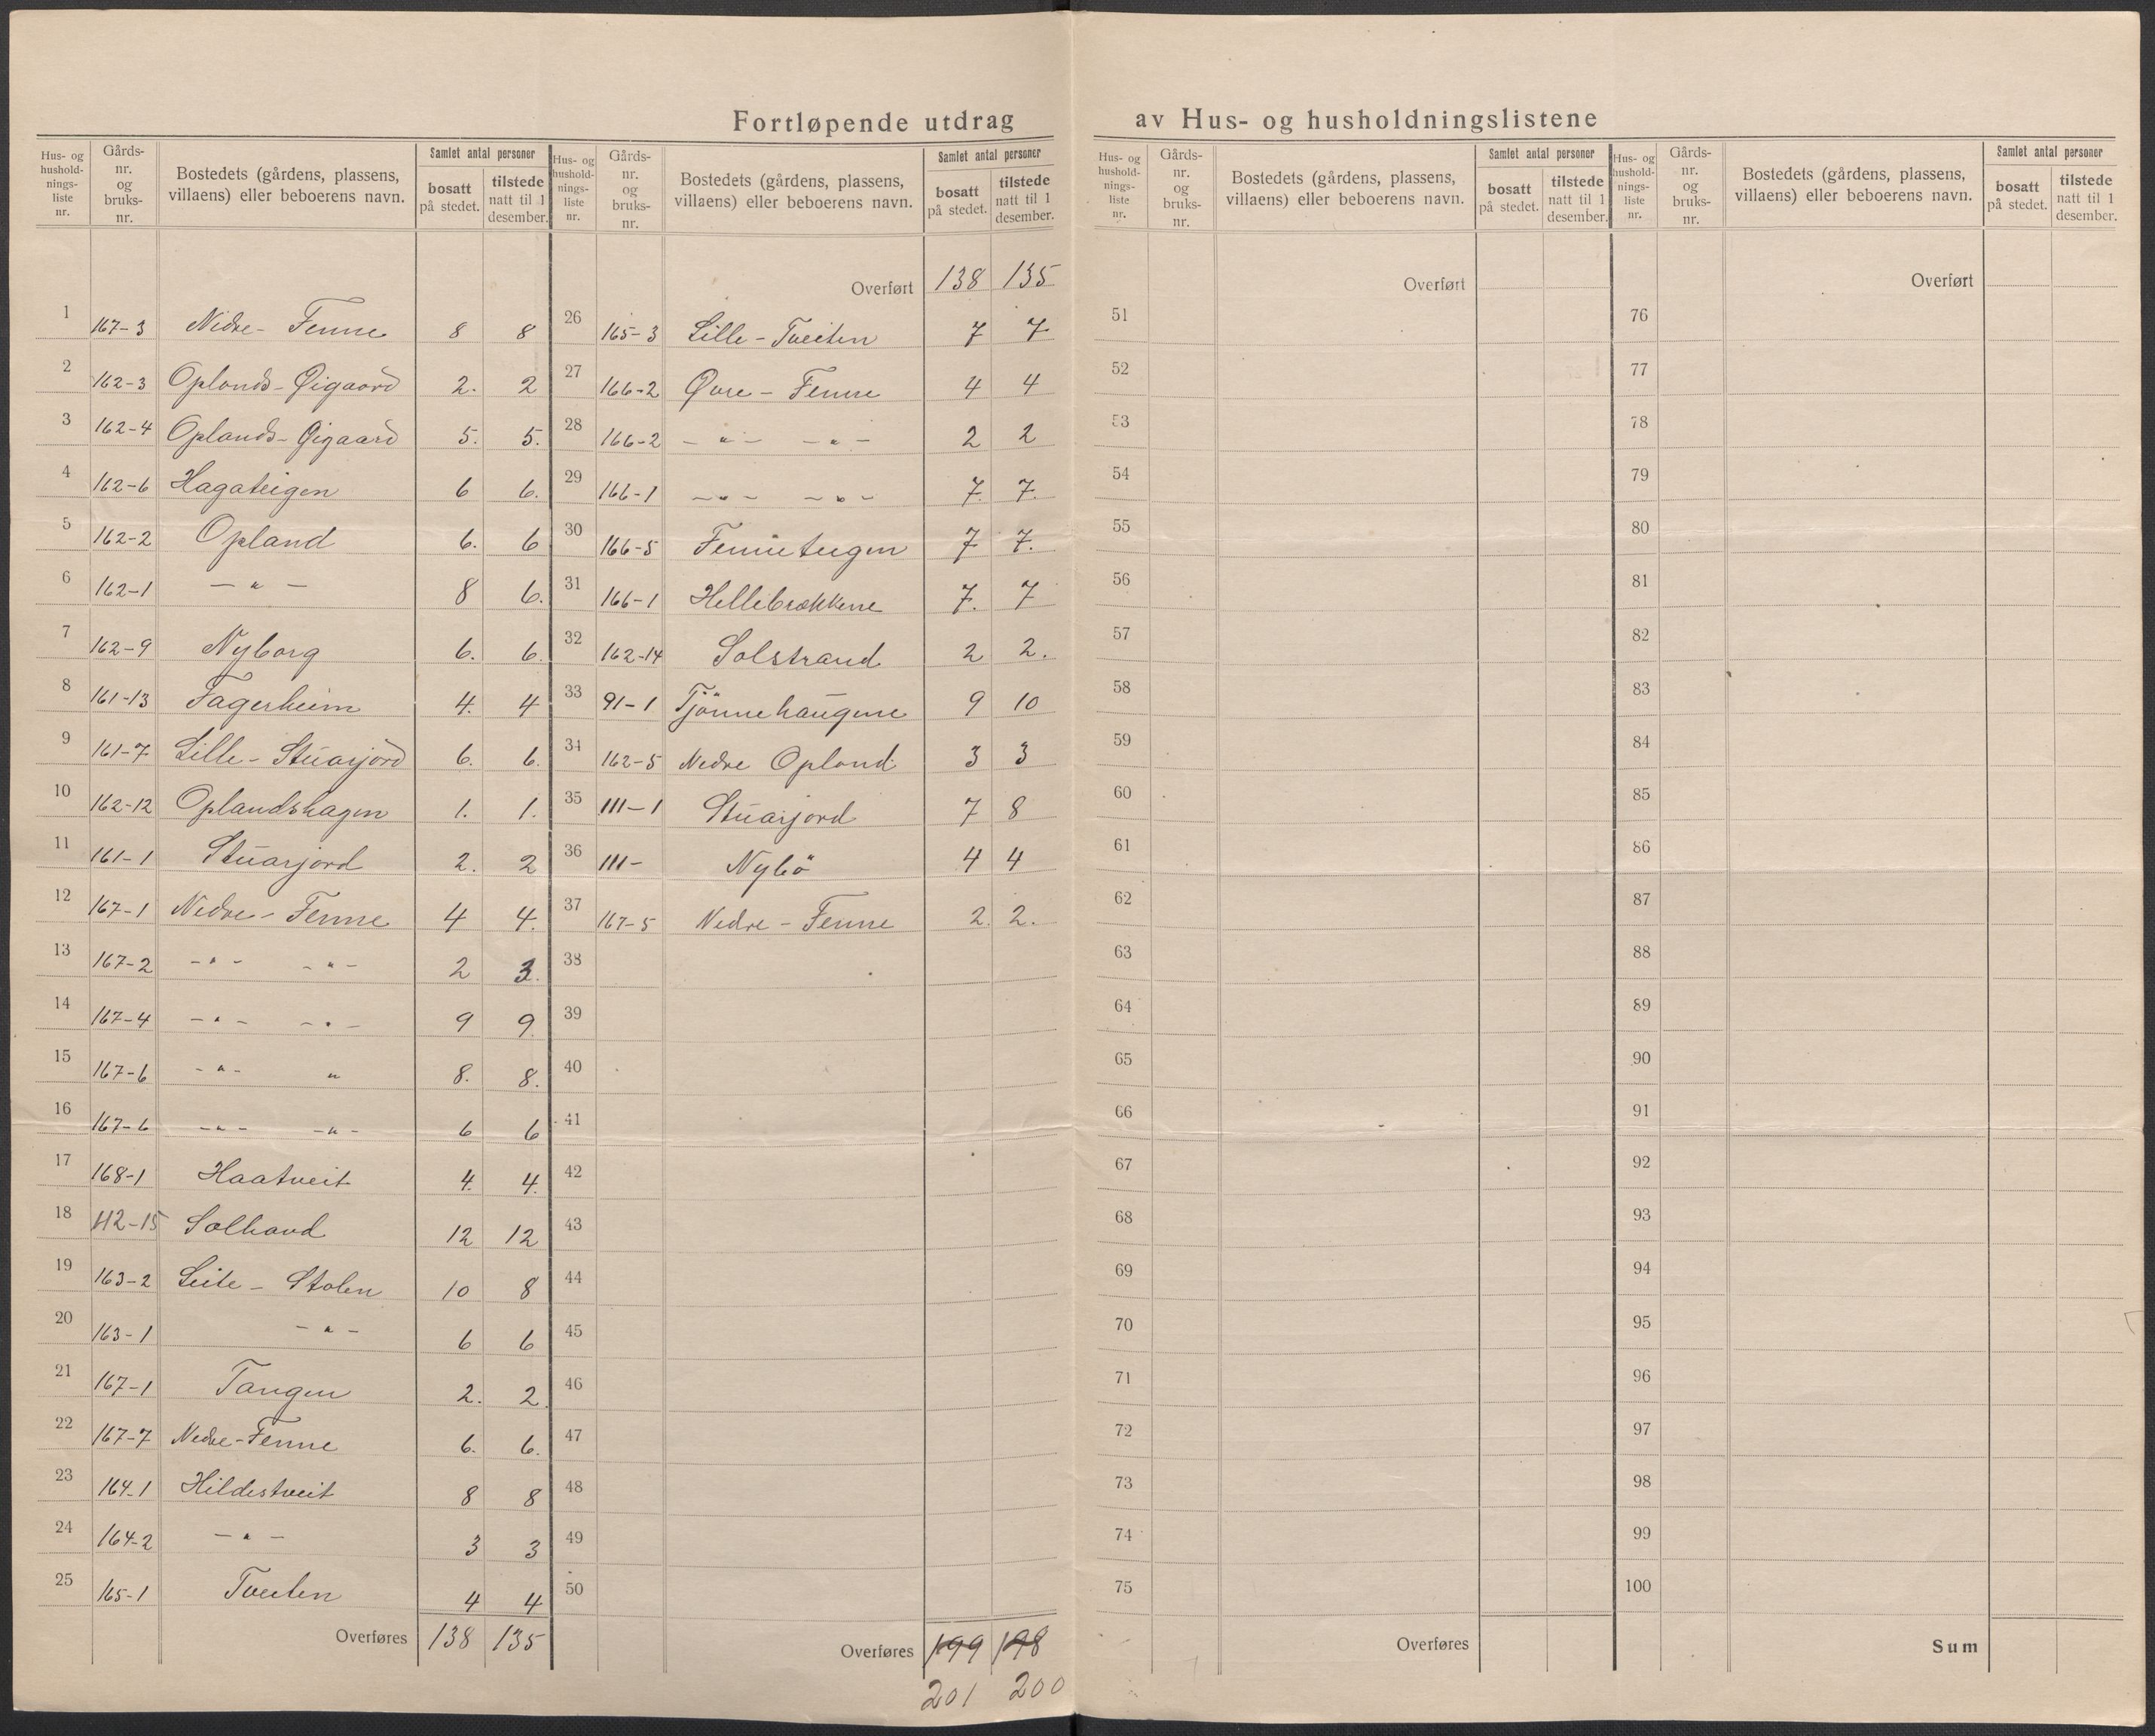 Fortløpende utdrag av Hus- og husholdningslistene
Hus- og hushold-nings-liste nr. Gårds-nr. og bruks-nr. Bostedets (gårdens, plassens, villaens) eller beboerens navn. Samlet antal personer bosatt på stedet. tilstede natt til 1 desember.
1 167-3 Nedre- Fenne 8 8
2 162-3 Oplands-Øigaard 2. 2
3 162-4 Oplands-Øigaard 5. 5.
4 162-6 Hagateigen 6 6.
5 162-2 Opland 6. 6
6 162-1 — " — 8 6.
7 162-9 Nyborg 6. 6.
8 161-13 Fagerheim 4. 4
9 161-7 Lille-Stuarjord 6. 6.
10 162-12 Oplandshagen 1. 1.
11 161-1 Stuarjord 2. 2
12 167-1 Nedre-Fenne 4 4.
13 167-2 - " - - " - 2 3.
14 167-4 - " - - " - 9 9.
15 167-6 - " - " 8. 8.
16 167-6 - " - - " - 6 6
17 168-1 Haatveit 4. 4.
18 112-15 Solhaud 12 12
19 163-2 Leite- Stolen 10 8
20 163-1 - " - 6 6
21 167-1 Tangen 2. 2.
22 167-7 Nedre-Fenne 6. 6.
23 164-1 Hildestveit 8 8
24 164-2 — " — 3 3
25 165-1 Tveiten 4 4
Overføres 138 135
Hus- og hushold-nings-liste nr. Gårds-nr. og bruks-nr. Bostedets (gårdens, plassens, villaens) eller beboerens navn. Samlet antal personer bosatt på stedet. tilstede natt til 1 desember.
Overført 138 135
26 165-3 Lille-Tveiten 7 7
27 166-2 Øvre-Fenne 4 4
28 166-2 - " - - " - 2 2
29 166-1 - " - - " - 7. 7.
30 166-5 Fenneteigen 7 7.
31 166-1 Hellebrækkene 7. 7
32 162-14 Solstrand 2 2.
33 91-1 Tjönnehaugene 9 10
34 162-5 Nedre Opland 3 3
35 111-1 Stuarjord 7 8
36 111- Nybö 4 4
37 167-5 Nedre-Fenne 2. 2.
38
39
40
41
42
43
44
45
46
47
48
49
50
Overføres 199 198
201 200
Hus- og hushold-nings-liste nr. Gårds-nr. og bruks-nr. Bostedets (gårdens, plassens, villaens) eller beboerens navn. Samlet antal personer bosatt på stedet. tilstede natt til 1 desember.
Overført
51
52
53
54
55
56
57
58
59
60
61
62
63
64
65
66
67
68
69
70
71
72
73
74
75
Overføres
Hus- og hushold-nings-liste nr. Gårds-nr. og bruks-nr. Bostedets (gårdens, plassens, villaens) eller beboerens navn. Samlet antal personer bosatt på stedet. tilstede natt til 1 desember.
Overført
76
77
78
79
80
81
82
83
84
85
86
87
88
89
90
91
92
93
94
95
96
97
98
99
100
Sum